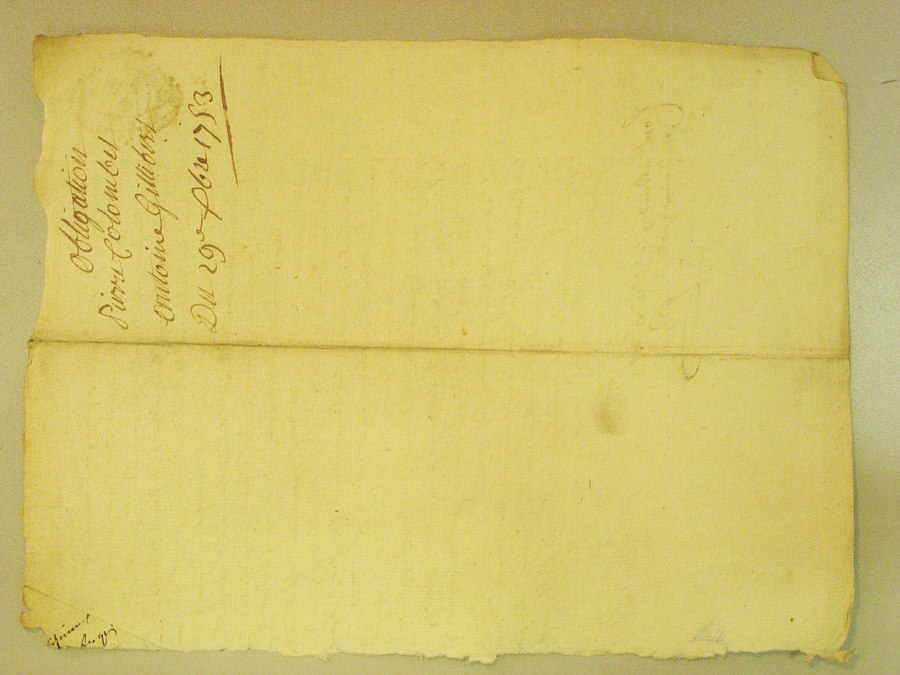 Obligation
Pierre Colombet
Antoine Gillibert
Du 29e Xbre 1753